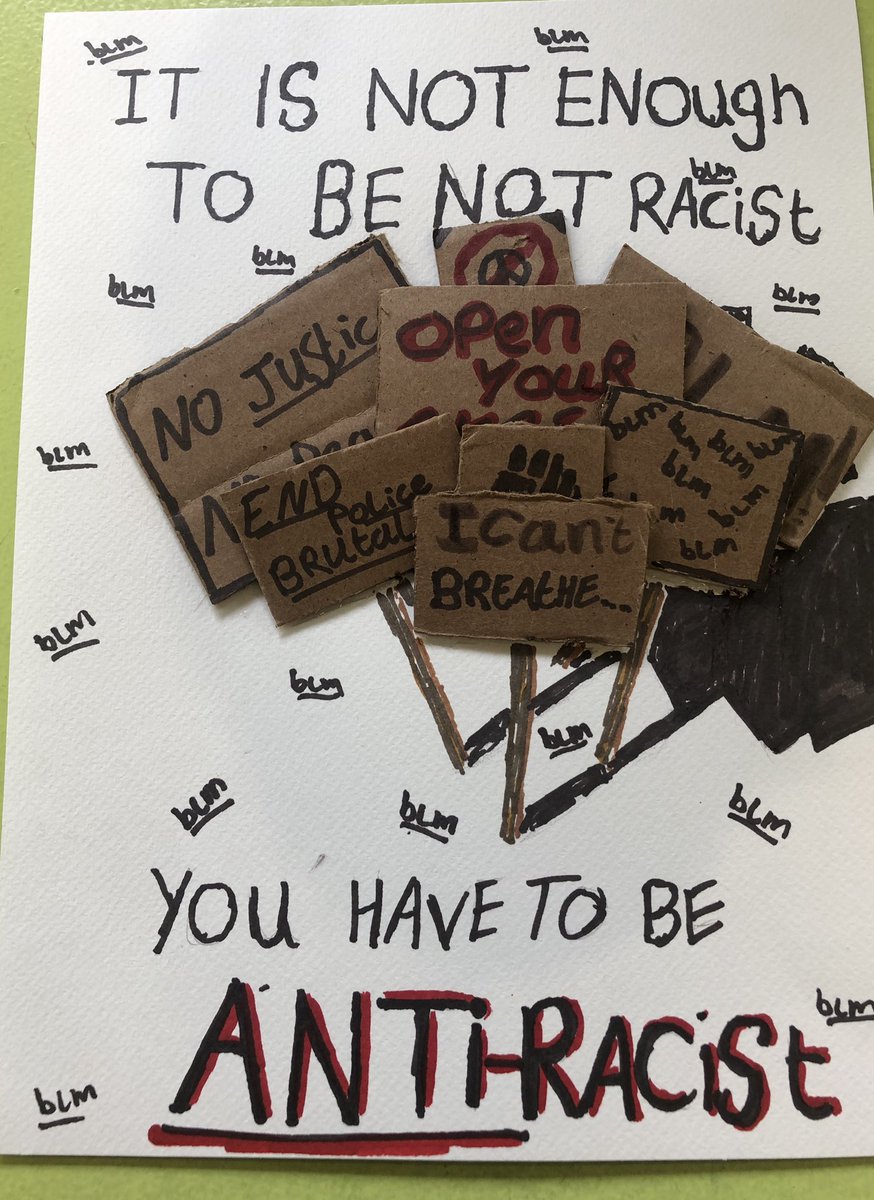 blm
blm
IT IS NOT ENough
TO BE NOT RAcist
blm
blm
blm
blm
NO Justic
OPen
YOUR
blm
blm
blm
blm
blm
blm
blm
blm
blm
END
Police
BRutal
I Can't
BREATHE...
blm
blm
blm
blm
blm
blm
YOU HAVE TO BE
ANTi-RACiSt
blm
blm